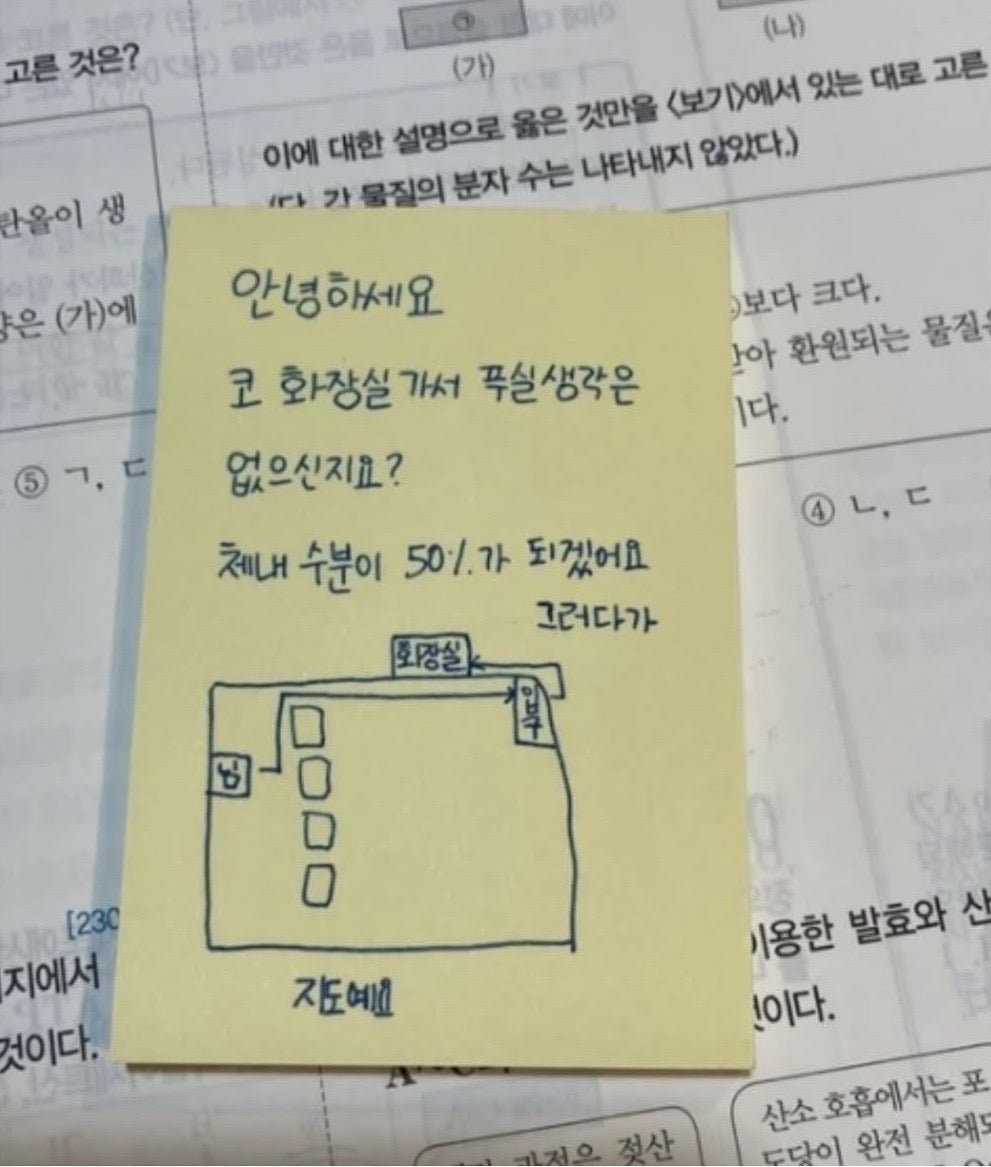 고른 것은?
㉠
(가)
(나)
이에 대한 설명으로 옳은 것만을 <보기>에서 있는 대로 고른
(단, 각 물질의 분자 수는 나타내지 않았다.)
탄올이 생
(가)에
보다 크다.
환원되는 물질은
이다.
⑤ ㄱ, ㄷ
④ ㄴ, ㄷ
안녕하세요
코 화장실가서 푸실생각은
없으신지요?
체내 수분이 50%가 되겠어요
그러다가
화장실
입구
님
지도예요
[230
지에서
것이다.
이용한 발효와 산
것이다.
과정은 젖산
산소 호흡에서는 포
도당이 완전 분해되